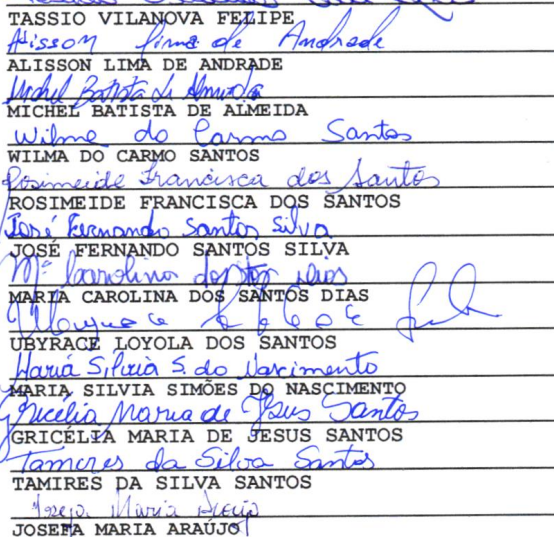 TASSIO VILANOVA FELIPE
Alisson Lima de Andrade
ALISSON LIMA DE ANDRADE
Michel Batista de Almeida
MICHEL BATISTA DE ALMEIDA
Wilma do Carmo Santos
WILMA DO CARMO SANTOS
Rosimeide Francisca dos Santos
ROSIMEIDE FRANCISCA DOS SANTOS
José Fernando Santos Silva
JOSÉ FERNANDO SANTOS SILVA
Mª Carolina dos Stos Dias
MARIA CAROLINA DOS SANTOS DIAS
UBYRACE LOYOLA DOS SANTOS
Maria Silvia S. do Nascimento
MARIA SILVIA SIMÕES DO NASCIMENTO
Gricélia Maria de Jesus Santos
GRICÉLIA MARIA DE JESUS SANTOS
Tamires da Silva Santos
TAMIRES DA SILVA SANTOS
Josefa Maria Araujo
JOSEFA MARIA ARAÚJO